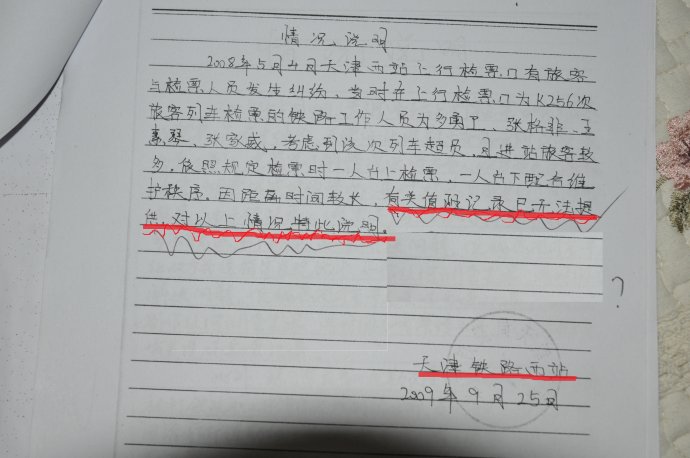 情况说明
2008年5月4日天津西站上行检票口有旅客
与检票人员发生纠纷，当时在上行检票口为K256次
旅客列车检票的铁路工作人员为多勇卫、张格非、王
惠琴、张家盛，考虑到该次列车超员，且进站旅客较
多，依照规定检票时一人台上检票，一人台下配合维
护秩序。因距离时间较长，有关值班记录已无法提
供，对以上情况特此说明。
?
天津铁路西站
2009年9月25日